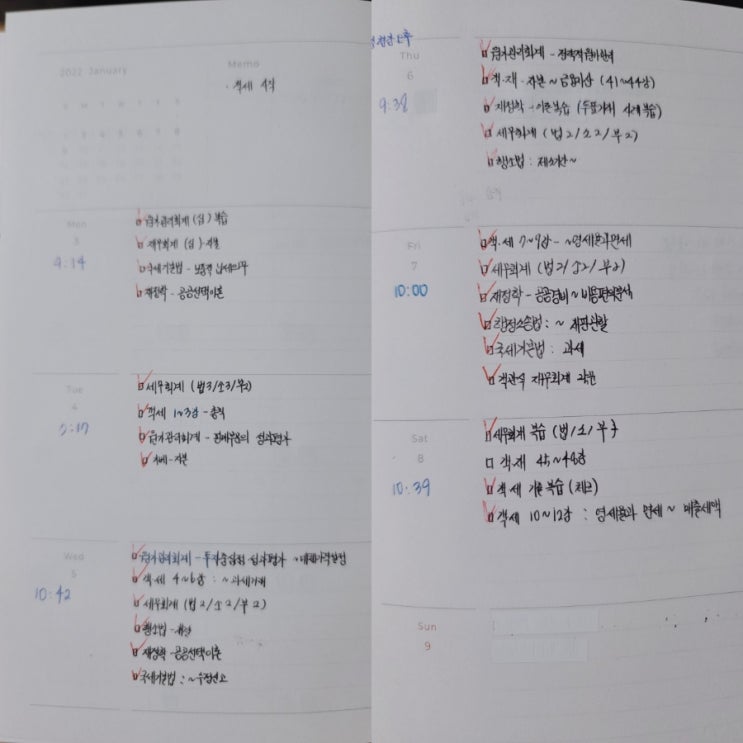 2022 January
Memo
· 객세 시작
Mon
3
9:14
원가관리회계 (심) 복습
재무회계 (심)
국세기본법 - 보충적 납세의무
재정학 - 공공선택이론
Tue
4
세무회계 (법3/소3/부2)
객세 1~3강 - 총칙
원가관리회계 - 판매부문의 성과평가
자본
Wed
5
10:42
원가관리회계 - 투자중심점 성과평가 ~대체가격결정
객세 4~6강 : ~과세거래
세무회계 (법2/소2/부2)
행소법
재정학 - 공공선택이론
국세기본법 : ~
Thu
6
9:38
원가관리회계 -
객재 - 자본 ~ 금융자산 (41~44강)
재정학 - 이론복습 (투표거래 사례 복습)
세무회계 (법2/소2/부2)
행소법 : 제소기간~
Fri
7
10:00
객세 7~9강 - ~영세율과 면세
세무회계 (법2/소2/부2)
재정학 - 공공경비 ~ 비용편익분석
행정소송법 : ~ 재판관할
국세기본법 : 과세
객관식 재무회계
Sat
8
10:39
세무회계 복습 (법/소/부)
객재 45~48강
객세 기출 복습
객세 10~12강 : 영세율과 면세 ~ 매출세액
Sun
9